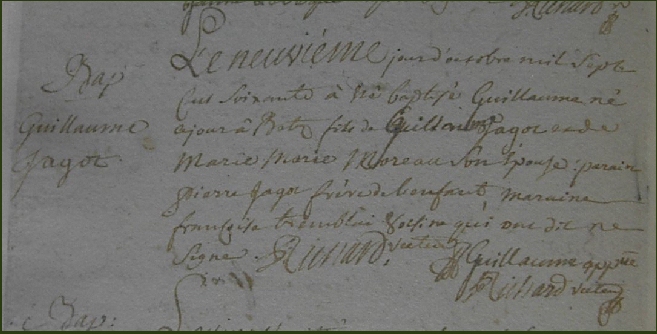 Richard
Le neuvième jour d'octobre mil Sept
Bap
Cent Soixante à été baptisé Guillaume né
Guillaume
cejour à Betz fils de Guillaume Jagot et de
Jagot
Marie Marie Moreau Son Epouse : parain
pierre Jagot frère de l'enfant, maraine
françoise tremblai Voisine qui ont dit ne
Signer. Richard, recteur Guillaume
Richard recteur
Bap: